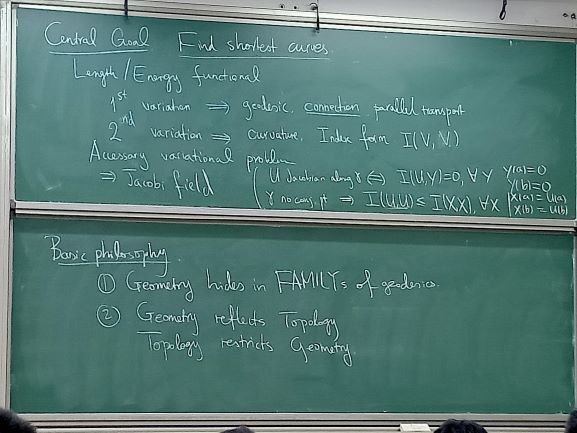 Central Goal Find shortest curves.
Length/Energy functional
1st variation ⇒ geodesic, connection, parallel transport
2nd variation ⇒ curvature, Index form I(V, V)
Accessary variational problem
⇒ Jacobi field
U Jacobian along γ ⇔ I(U,Y)=0, ∀ Y Y(a)=0 Y(b)=0
γ no conj. pt ⇒ I(U,U) ≤ I(X,X), ∀X X(a)=U(a) X(b)=U(b)
Basic philosophy
① Geometry hides in FAMILYs of geodesics.
② Geometry reflects Topology
Topology restricts Geometry.